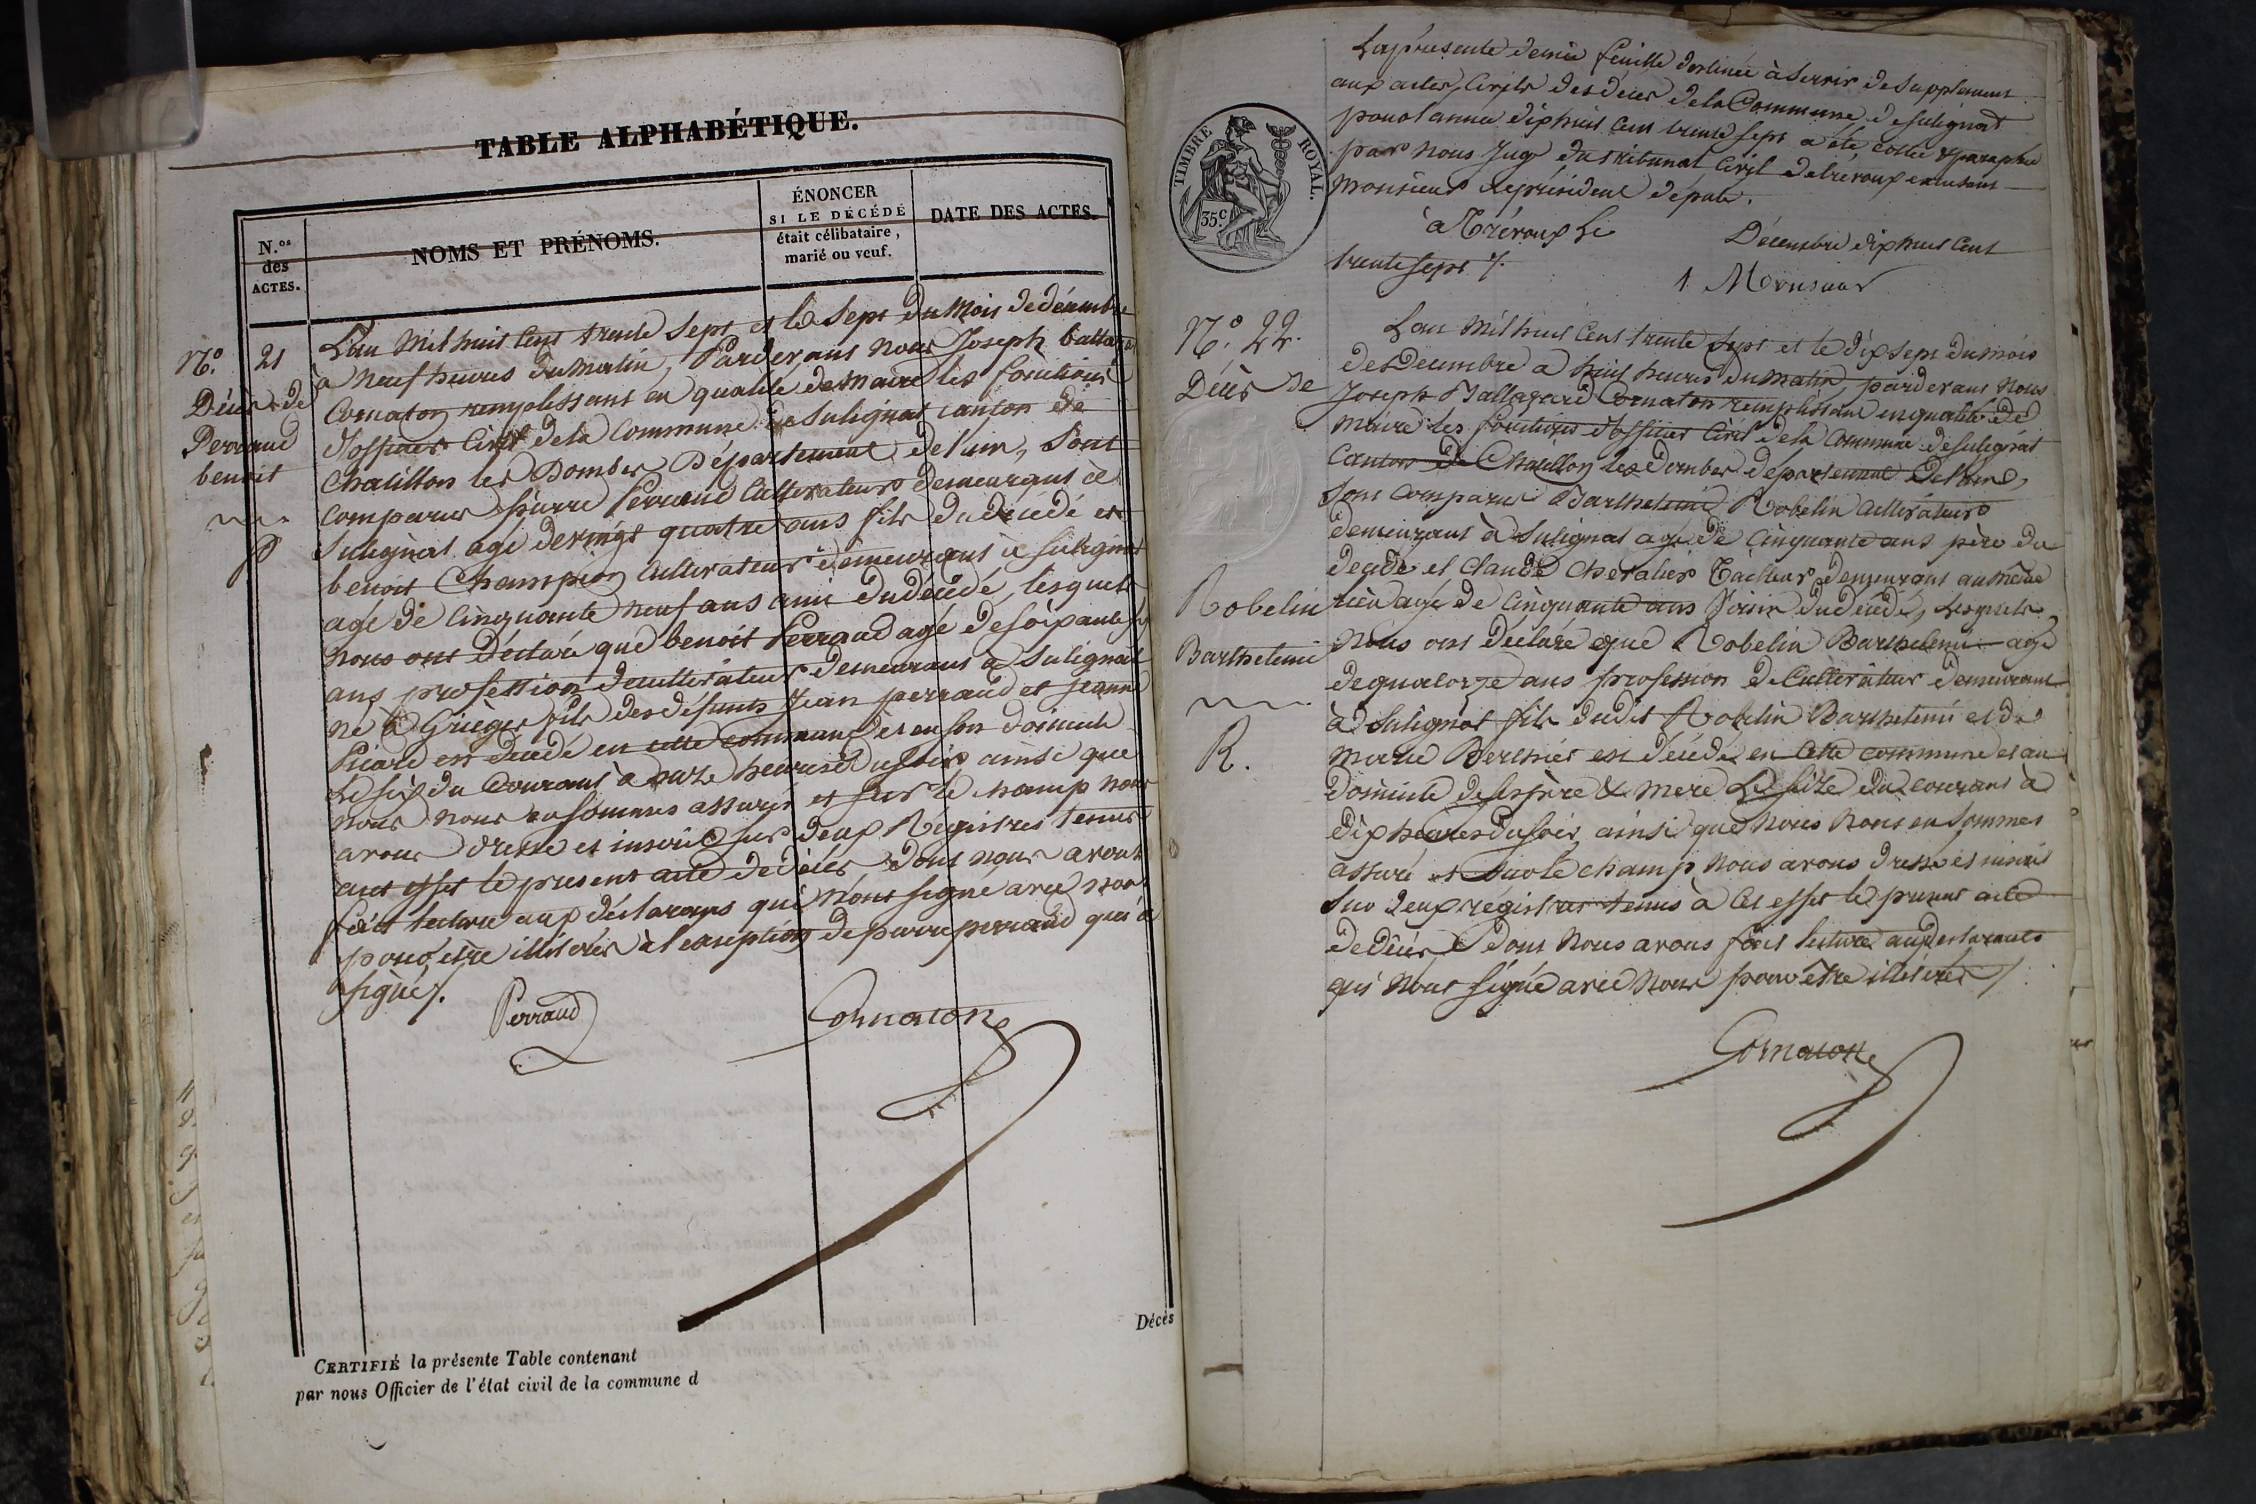 TABLE ALPHABÉTIQUE.
N.os des ACTES.
NOMS ET PRÉNOMS.
ÉNONCER
SI LE DÉCÉDÉ
était célibataire,
marié ou veuf.
DATE DES ACTES.
N.o 21
Décès de
Perraud
benoit
P
L'an Mil huit Cent trente Sept et le Sept du Mois de décembre
à Neuf heures du Matin, Pardevant nous Joseph
Cornaton remplissant en qualité de Maire les fonctions
d'officier Civil de la Commune de Sulignat canton de
Chatillon les Dombes Département de l'ain, Sont
comparus pierre Perraud Cultivateur demeurant à
Sulignat agé de vingt quatre ans fils du décédé et
benoit Champion Cultivateur demeurant à Sulignat
agé de Cinquante neuf ans ami du décédé, lesquels
nous ont déclaré que benoit Perraud agé de soixante
ans profession de cultivateur demeurant à Sulignat
né à Grièges fils des défunts Jean perraud et jeanne
Picard est décédé en cette commune et en son domicile
Le six du Courant à onze heures du soir ainsi que
nous nous en sommes assurés et sur le champ nous
avons dressé et inscrit sur deux Registres tenus
à cet effet le présent acte de décès dont nous avons
fait lecture aux déclarans qui n'ont signé avec nous
pour être illitérés à l'exception de pierre perraud qui a
signé /.
Perraud
Cornaton
CERTIFIÉ la présente Table contenant
par nous Officier de l'état civil de la commune d
Décès
La présente demie feuille destinée à servir de Supplément
aux actes Civils des décès de la Commune de sulignat
pour l'année dix huit cent trente sept a été cotée & paraphée
par nous Juge du tribunal Civil de trévoux
Monsieur le président
à Trévoux Le Décembre dix huit Cent
trente sept /.
TIMBRE ROYAL.
35.c
N.o 22.
Décès de
Robelin
Barthelemie
R.
L'an Mil huit Cent trente Sept et le dix sept du mois
de Décembre à huit heures du matin, pardevant nous
Joseph Baltazard Cornaton remplissant en qualité de
Maire les fonctions d'officier Civil de la Commune de Sulignat
Canton de Chatillon les Dombes département De l'ain,
Sont comparus Barthelemie Robelin cultivateur
demeurant à Sulignat agé de Cinquante ans père du
décédé et Claude Chevalier Tailleur demeurant au même
lieu agé de Cinquante ans Voisin du décédé, Lesquels
Nous ont déclaré que Robelin Barthelemie agé
de quatorze ans profession de Cultivateur demeurant
à Sulignat fils dudit Robelin Barthelemie et de
Marie Berthier est décédé en Cette commune et au
domicile de ses père & mere Le seize du courant à
dix heures du soir, ainsi que nous nous en sommes
assuré et sur le champ nous avons dressé et inscrit
sur deux régistres tenus à cet effet le présent acte
de décès dont nous avons fait lecture aux déclarants
qui n'ont signé avec nous pour être illitérés /
Cornaton